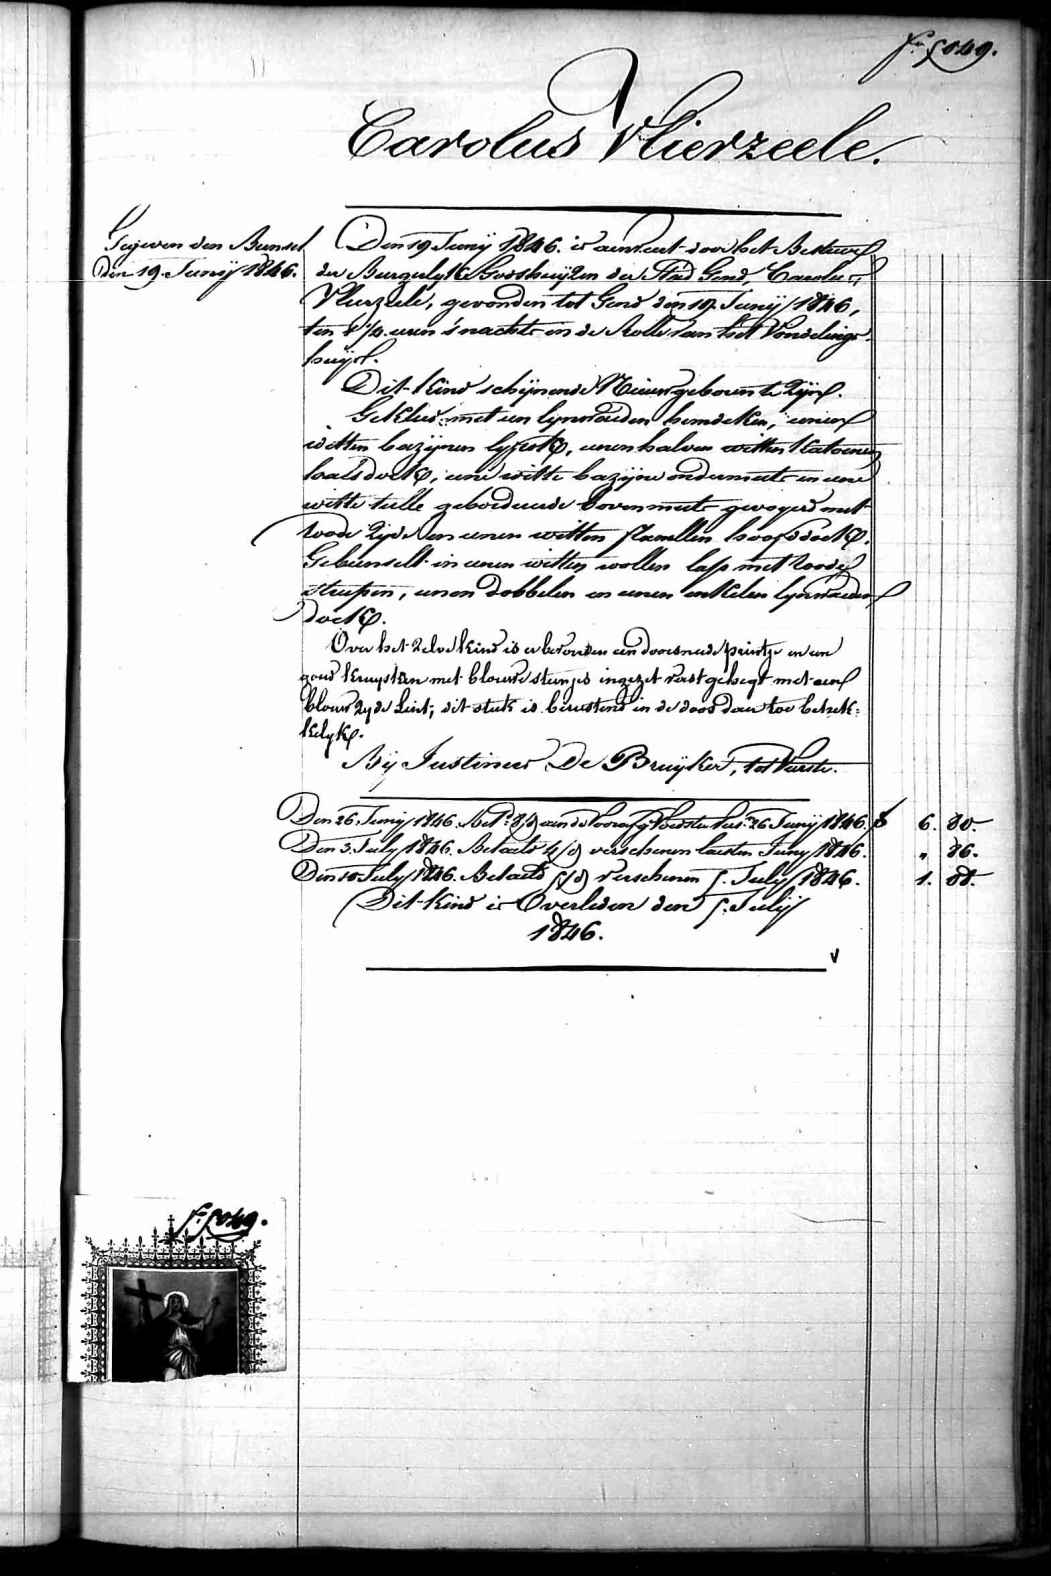 Carolus Vlierzeele.
Gegeven den Bunsel
den 19. Junij 1846.
Den 19 Junij 1846. is aenveert door het Bestuer
der Burgelyke Godshuijzen der Stad Gend, Carolus
Vlierzeele, gevonden tot Gend den 19 Junij 1846,
ten uren s'nachts in de Rolle van het Vondelings-
huijs.
Dit kind schijnende Nieuwgeboren te zijn.
Gekleed met een lynwaeden hemdeken, eenen
witten bazijnen lyfrok, eenen halven witten katoenen
halsdoek, eene witte bazijne ondermuts en eene
witte tulle geborduerde bovenmuts gevogerd met
roode zijde en eenen witten flanellen hoofddoek.
Gebunselt in eenen witten wollen lap met roode
streepen, eenen dobbelen en eenen enkelen lynwaeden
doek.
Over het zelve kind is er bevonden een doorsnede printje en een
goud kruysken met blouwe steentjes ingezet vastgehegt met een
blouw zyde Lint; dit stuk is berustend in de doos daer toe betrek-
kelyk.
Bij Justinus De Bruijker, tot Vurste.
Den 26. Junij 1846. Bet. aen de voorz. Voedster Vers. 26 Junij 1846. 6. 80.
Den 3. July 1846. Betaelt verschenen laesten Juny 1846. " 86.
Den 10 July 1846. Betaelt verschenen 5. July 1846. 1. 88.
Dit Kind is Overleden den 5. Julij
1846.